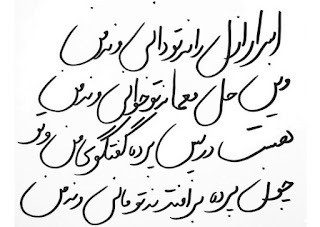 اسرار ازل را نه تو دانی و نه من
وین حل معما نه تو خوانی و نه من
هست در پس پرده گفتگوی من و تو
چون پرده برافتد نه تو مانی و نه من